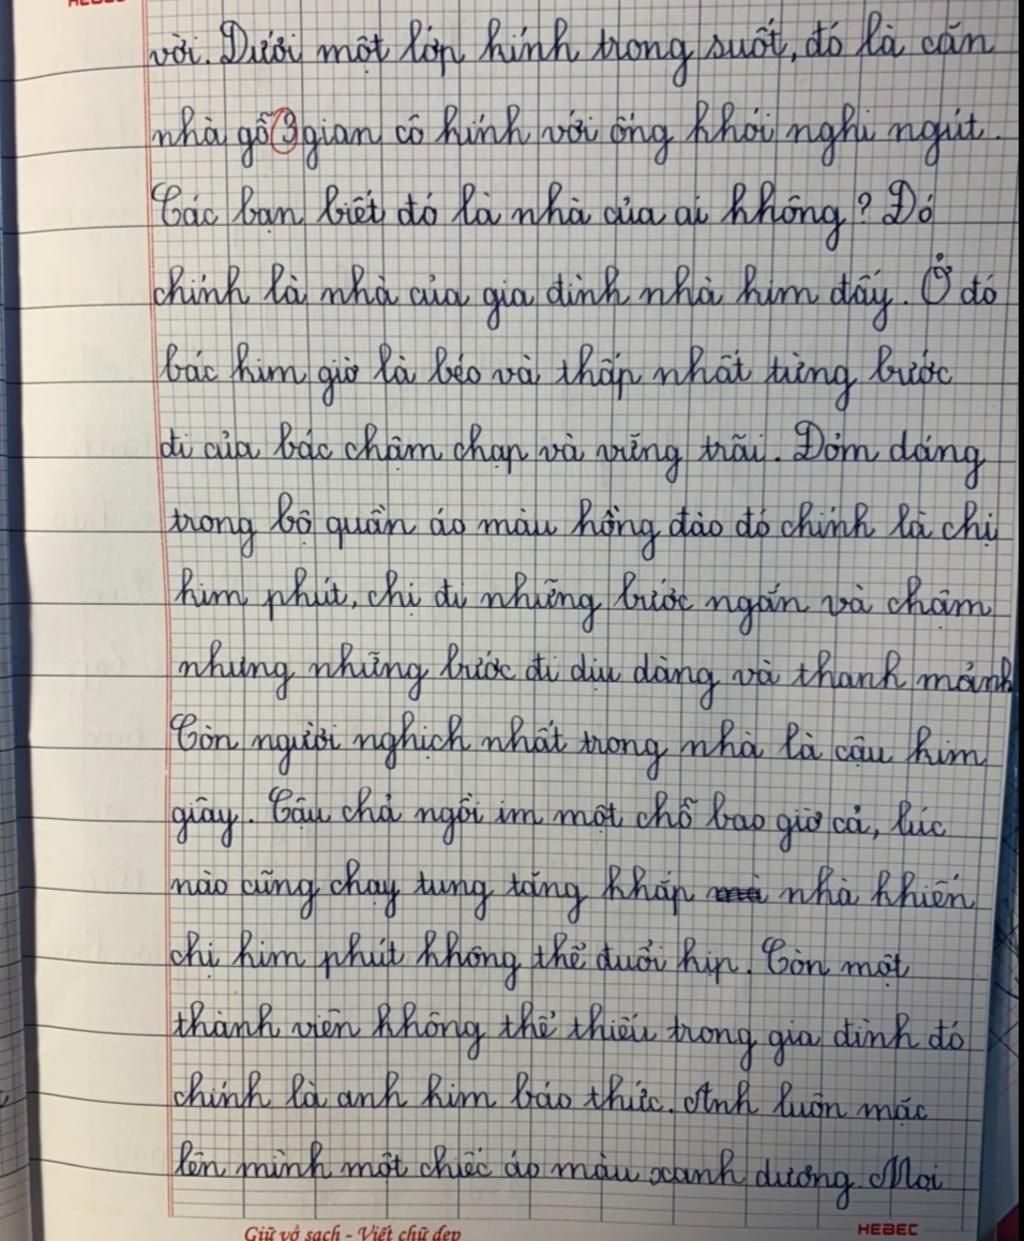 HEBEC
vời. Dưới một lớp kính trong suốt, đó là căn
nhà gỗ 3 gian có kính với ống khói nghi ngút.
Các bạn biết đó là nhà của ai không? Đó
chính là nhà của gia đình nhà kim đấy. Ở đó
bác kim giờ là béo và thấp nhất từng bước
đi của bác chậm chạp và vững trãi. Dỏm dáng
trong bộ quần áo màu hồng đào đó chính là chị
kim phút, chị đi những bước ngắn và chậm
nhưng những bước đi dịu dàng và thanh mảnh
Còn người nghịch nhất trong nhà là cậu kim
giây. Cậu chả ngồi im một chỗ bao giờ cả, lúc
nào cũng chạy tung tăng khắp nhà khiến
chị kim phút không thể đuổi kịp. Còn một
thành viên không thể thiếu trong gia đình đó
chính là anh kim báo thức. Anh luôn mặc
lên mình một chiếc áo màu xanh dương. Mọi
Giữ vở sạch - Viết chữ đẹp
HEBEC